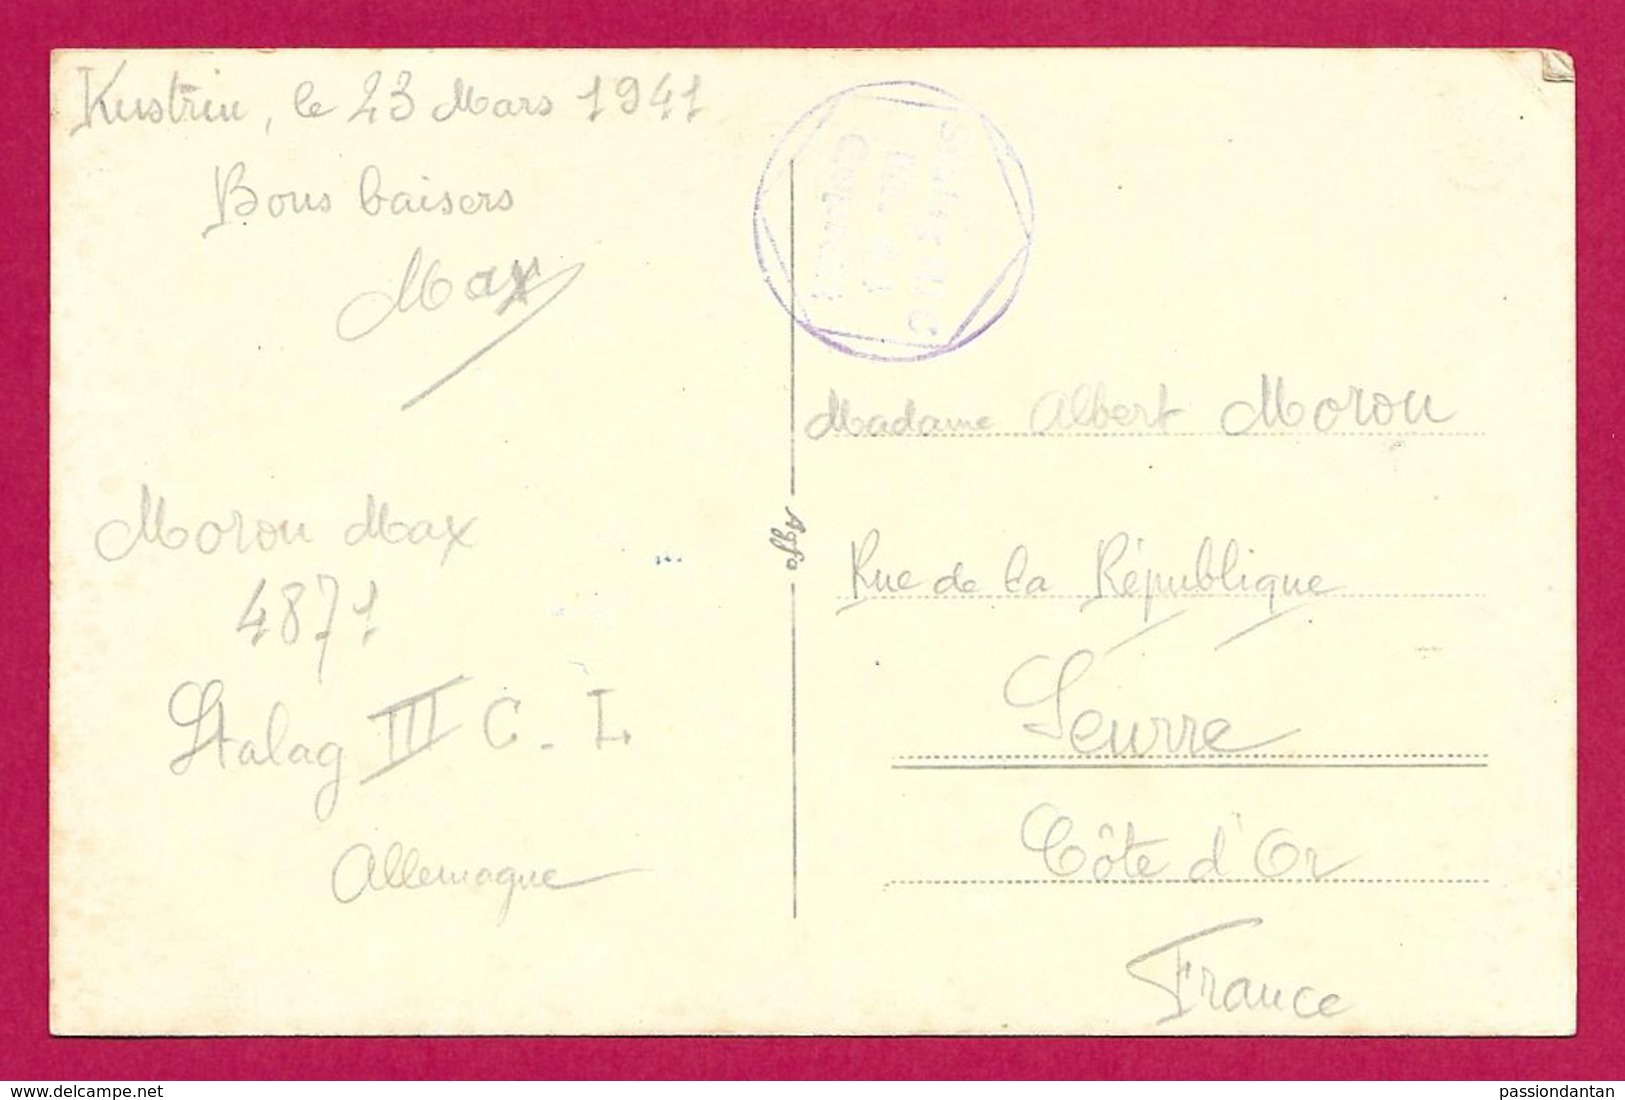 Kustrin, le 23 Mars 1941
Bons baisers
Max
Moron Max
4871
Stalag III C. I
Allemagne
Stalag III C
Geprüft
Agfa
Madame Albert Moron
Rue de la République
Seurre
Côte d'Or
France
passiondantan